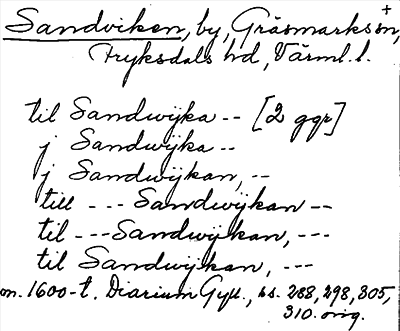 Sandviken, by, Gräsmarks sn, +
Fryksdals hd, Värml. l.
til Sandwijka -- [2 ggr]
j Sandwijka --
j Sandwijkan, --
till --- Sandwijkan --
til --- Sandwijkan, ---
til Sandwijkan, ---
m. 1600-t. Diarium Gyll., ss. 288, 298, 305,
310. orig.